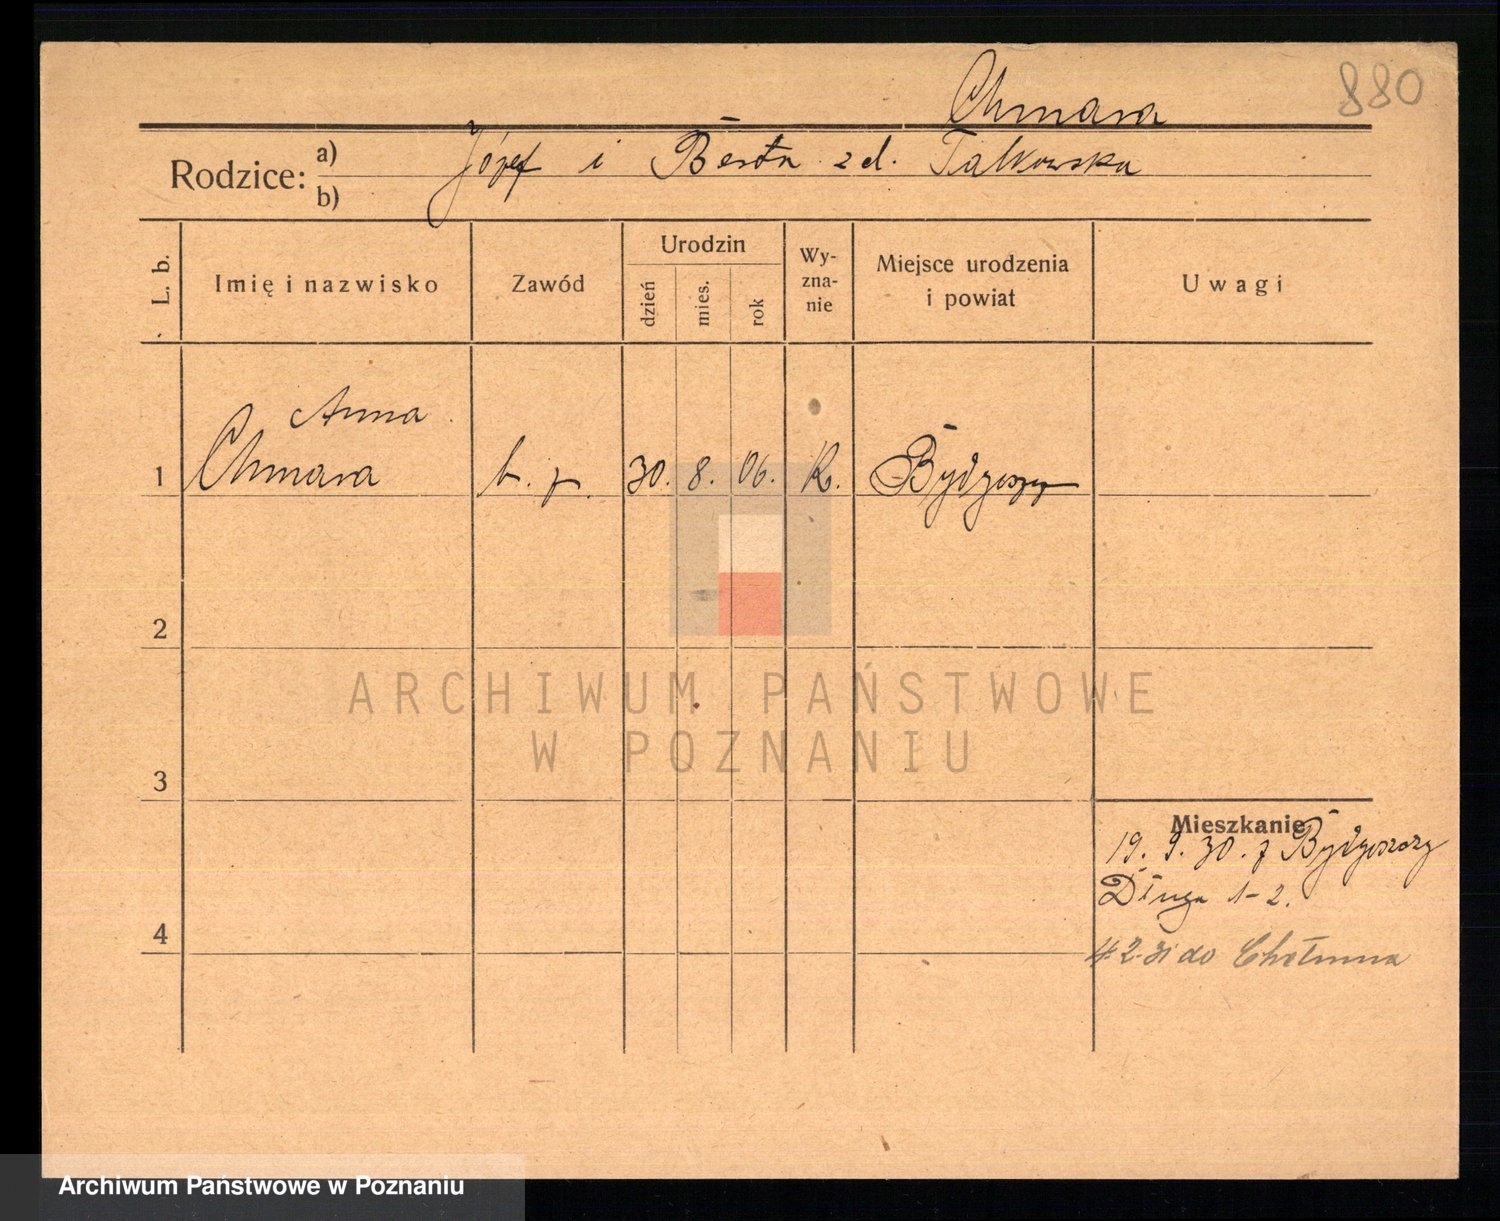 880
Chmara
Rodzice: a) b)
Józef i Berta zd. Talkowska
L. b.
Imię i nazwisko
Zawód
Urodzin
dzień
mies.
rok
Wy-
zna-
nie
Miejsce urodzenia
i powiat
Uwagi
Anna
1 Chmara b. z. 30. 8. 06. R. Bydgoszcz
2
ARCHIWUM PAŃSTWOWE
W POZNANIU
3
Mieszkanie
19. 9. 30. z Bydgoszczy
Długa 1-2.
4
4 2. 31 do Chełmna
Archiwum Państwowe w Poznaniu